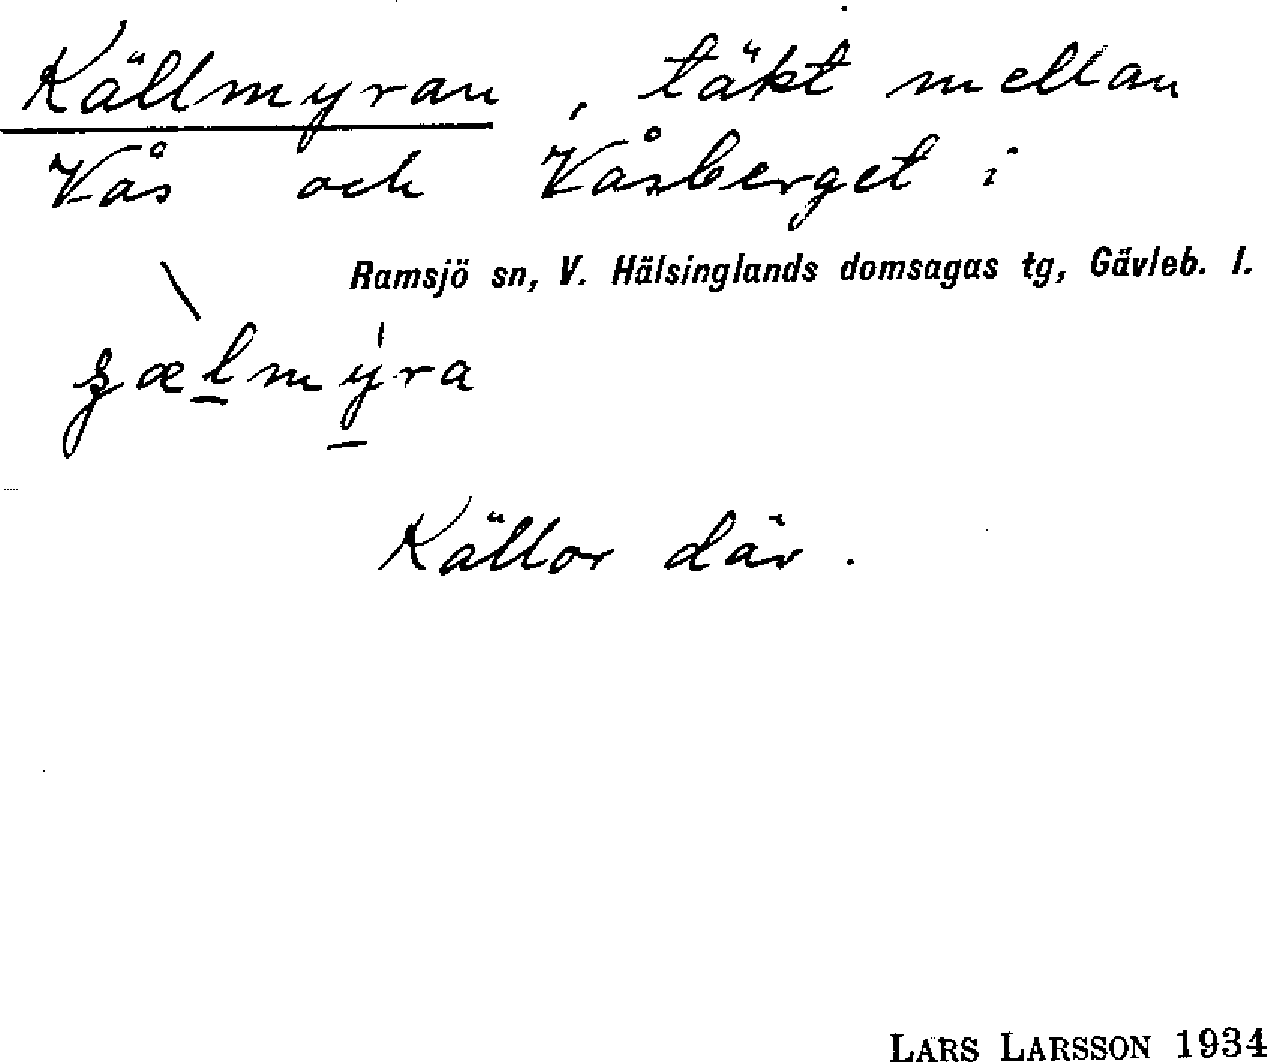 Källmyran, täkt mellan
Vås och Våsberget i
Ramsjö sn, V. Hälsinglands domsagas tg, Gävleb. l.
Källor där.
LARS LARSSON 1934